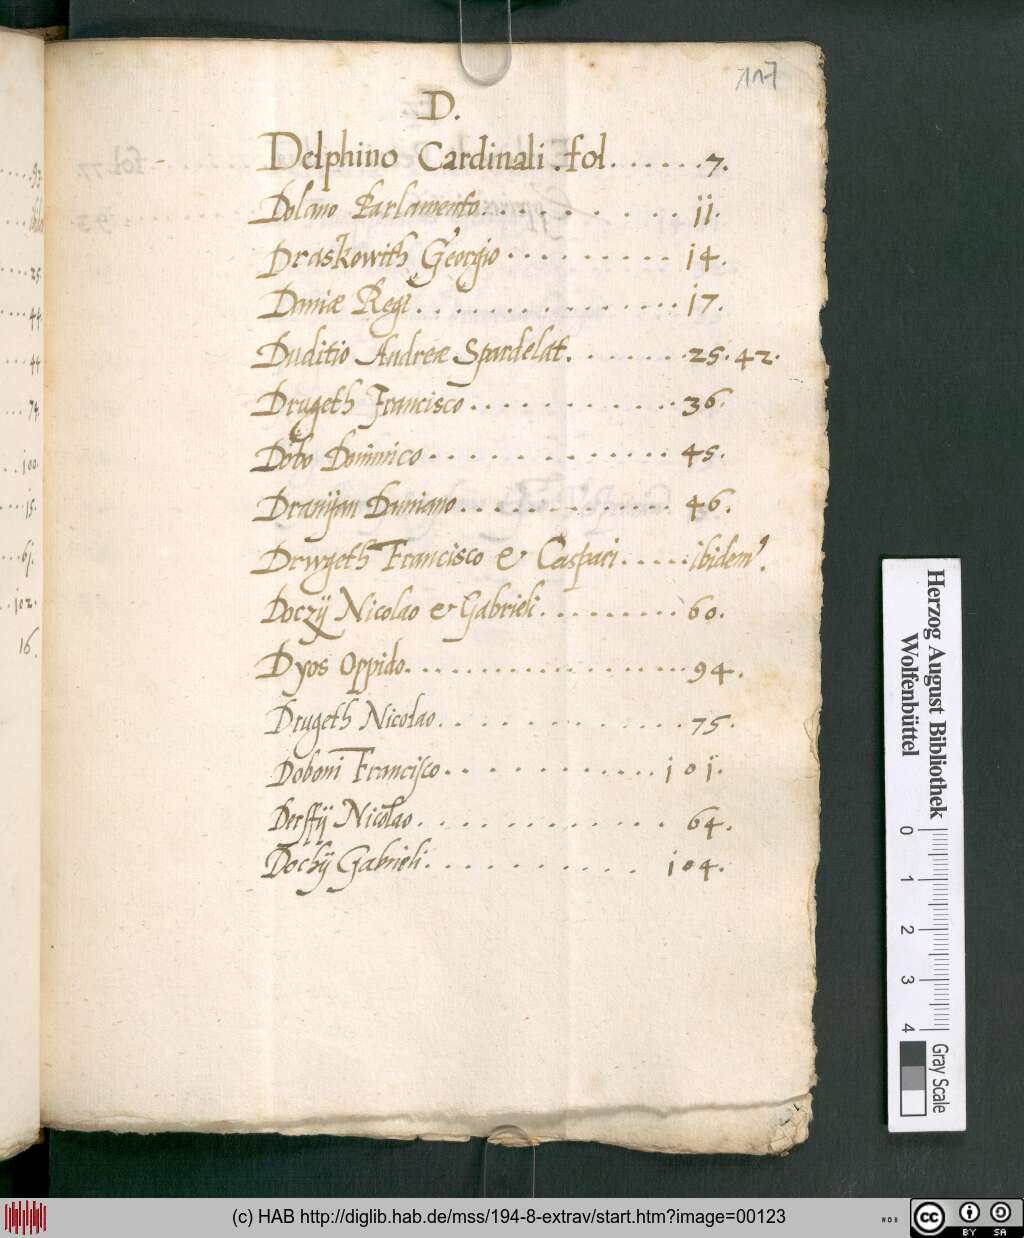 117
D.
Delphino Cardinali . fol. . . . . . 7.
Dolano Parlamento. . . . . . . . 11.
Draskowith Georgio . . . . . . . . . 14.
Daniæ Regi . . . . . . . . . . . . . 17.
Duditio Andreæ Spardelat. . . . . . . . 25. 42.
Drugeth Francisco . . . . . . . . . . . 36.
Dobo Dominico . . . . . . . . . . . . 45.
Damiano . . . . . . . . . . . . 46.
Drwgeth Francisco & Caspari . . . . . ibidem.
Doczÿ Nicolao & Gabrieli . . . . . . . . 60.
Dyos Oppido. . . . . . . . . . . . . . . . 94.
Drugeth Nicolao . . . . . . . . . . . . . 75.
Doboni Francisco . . . . . . . . . . . 101.
Derffÿ Nicolao . . . . . . . . . . . . 64.
Dochÿ Gabrieli . . . . . . . . . . 104.
93
25
44
44
74.
100.
15.
61.
102.
16.
Herzog August Bibliothek
Wolfenbüttel
0 1 2 3 4
Gray Scale
(c) HAB http://diglib.hab.de/mss/194-8-extrav/start.htm?image=00123
WDB
cc BY SA